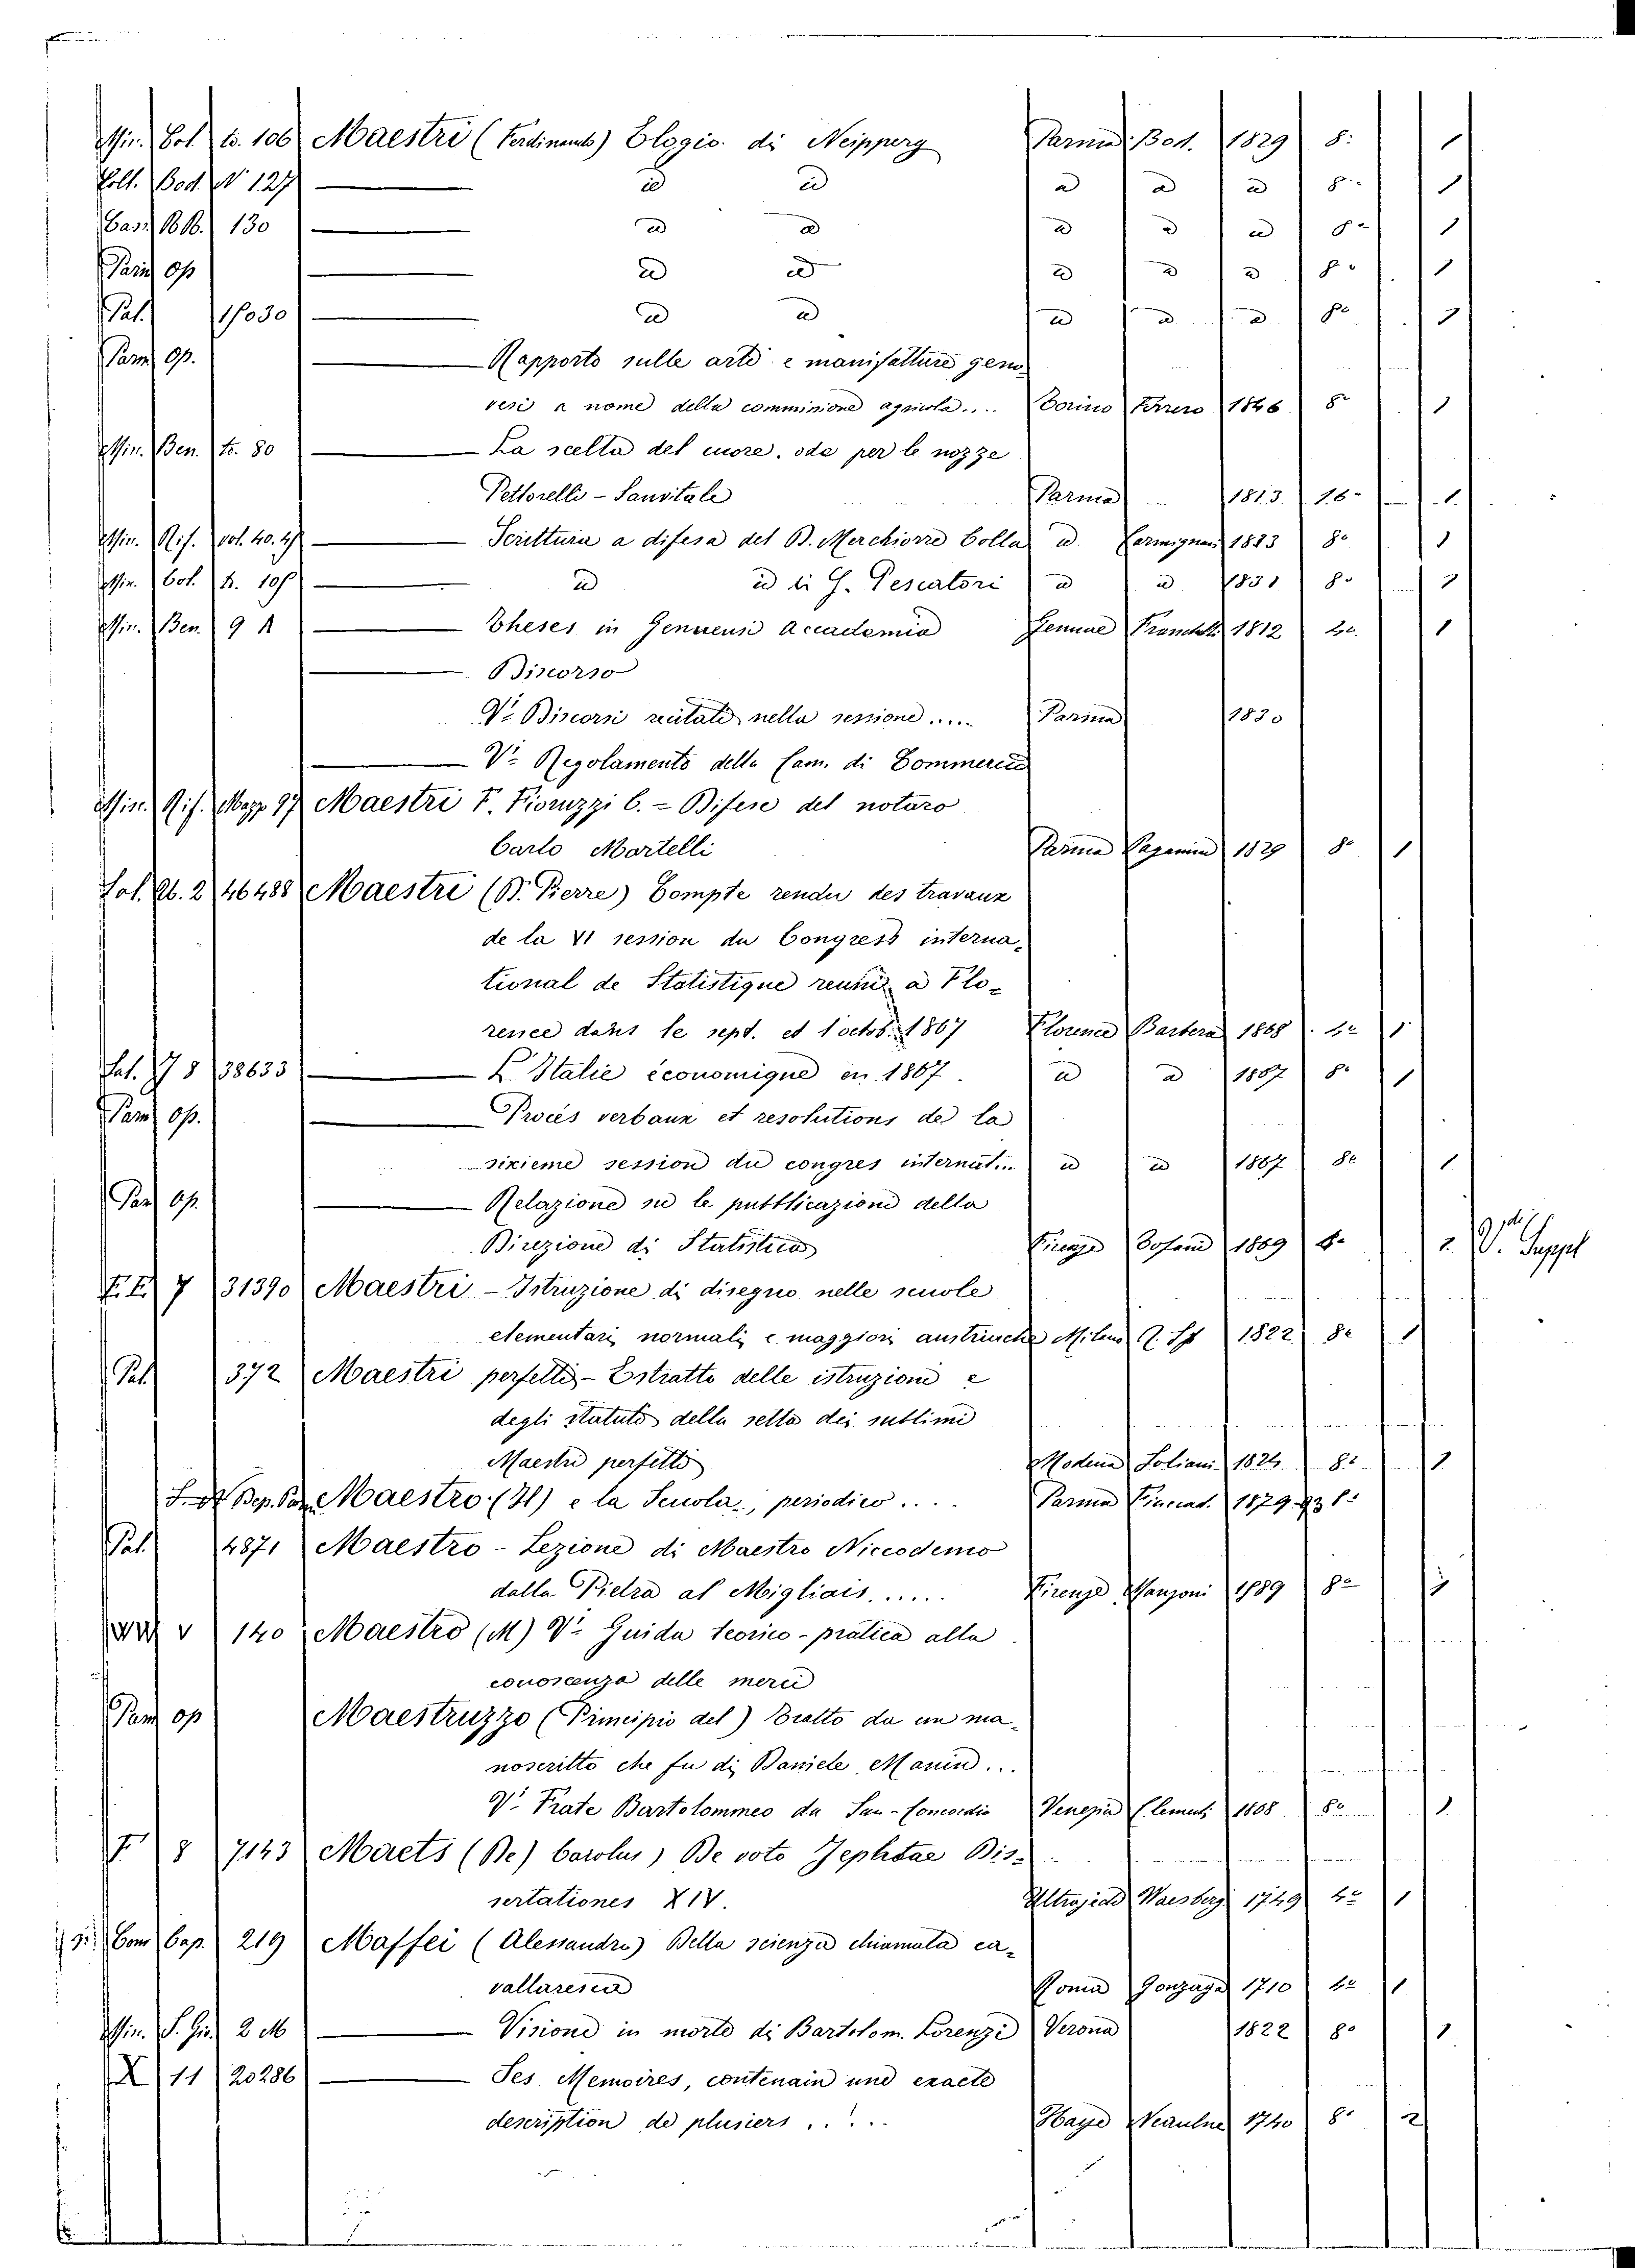 Min. Bol. to. 106 Maestri (Ferdinando) Elogio di Neipperg Parma Bod. 1829 8: 1
Coll. Bod. N 127 — id id id id id 8° 1
Cass. BB. 130 — id id id id id 8° 1
Parm op — id id id id id 8° 1
Pal. 18030 — id id id id id 8° 1
Parm op. — Rapporto sulle arti e manifatture geno-
vesi a nome della commissione agricola.... Torino Ferrero 1846 8° 1
Min. Ben. to. 80 — La scelta del cuore, ode per le nozze
Pettorelli - Sanvitale Parma 1813 16° 1
Min. Rif. vol. 40.4 — Scrittura a difesa del D. Merchiorre Colla id. Carmignani 1833 8° 1
Min. Bol. t. 108 — id id di G. Pescatori id id 1831 8° 1
Min. Ben. 9 A — Theses in Genuensi Accademia Genuae Franchelli 1812 4° 1
— Discorso
V. Discorsi recitati nella sessione ..... Parma 1830
— V. Regolamento della Cam. di Commercio
Min. Rif. Mazz 97 Maestri F. Fioruzzi C. = Difese del notaro
Carlo Martelli Parma Paganini 1829 8° 1
Sal. Q. 2 46488 Maestri (D. Pierre) Compte rendu des travaux
de la VI session du Congress interna-
tional de Statistique reuni a Flo-
rence dans le sept. et 1 octob. 1867 Florence Barbera 1868 4° 1
Sal. 8 38633 — L'Italie économique en 1867. id id 1867 8° 1
Parm op. — Procés verbaux et resolutions de la
sixieme session du congres internat... id id 1867 8° 1
Parm op. — Relazione su le pubblicazioni della
Direzione di Statistica Firenze Tofani 1869 4° 1 V. Suppl
7 31390 Maestri - Istruzione di disegno nelle scuole
elementari, normali e maggiori austriache Milano R. St 1822 8° 1
Pal 372 Maestri perfetti - Estratto delle istruzioni e
degli statuti della setta dei sublimi
Maestri perfetti Modena Soliani 1824 8° 1
Dep. Par. Maestro (Il) e la Scuola, periodico .... Parma Fiaccad. 1879-93 8°
Pal. 4871 Maestro - Lezione di Maestro Niccodemo
dalla Pietra al Migliaio ...... Firenze Manzoni 1889 8° 1
V 140 Maestro (M) V. Guida teorico-pratica alla
conoscenza delle merci
Parm op Maestruzzo (Principio del) Tratto da un ma-
noscritto che fu di Daniele Manin...
V. Frate Bartolommeo da San-Concordio Venezia Clementi 1868 8° 1
F 8 7143 Maets (De) Carolus) De voto Jephtae Dis-
sertationes XIV. Ultrajecti Waesberg 1749 4° 1
Com Cap. 219 Maffei (Alessandro) Della scienza chiamata ca-
vallaresca Roma Gonzaga 1710 4° 1
Min. S. Giu 2 M — Visione in morte di Bartolom. Lorenzi Verona 1822 8° 1
X 11 20286 — Ses. Memoires, contenain und exacte
description de plusiers ..... Haye Neaulne 1740 8° 2